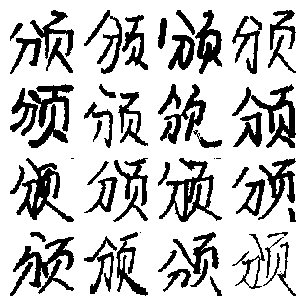 颁颁颁颁
颁颁颁颁
颁颁颁颁
颁颁颁颁